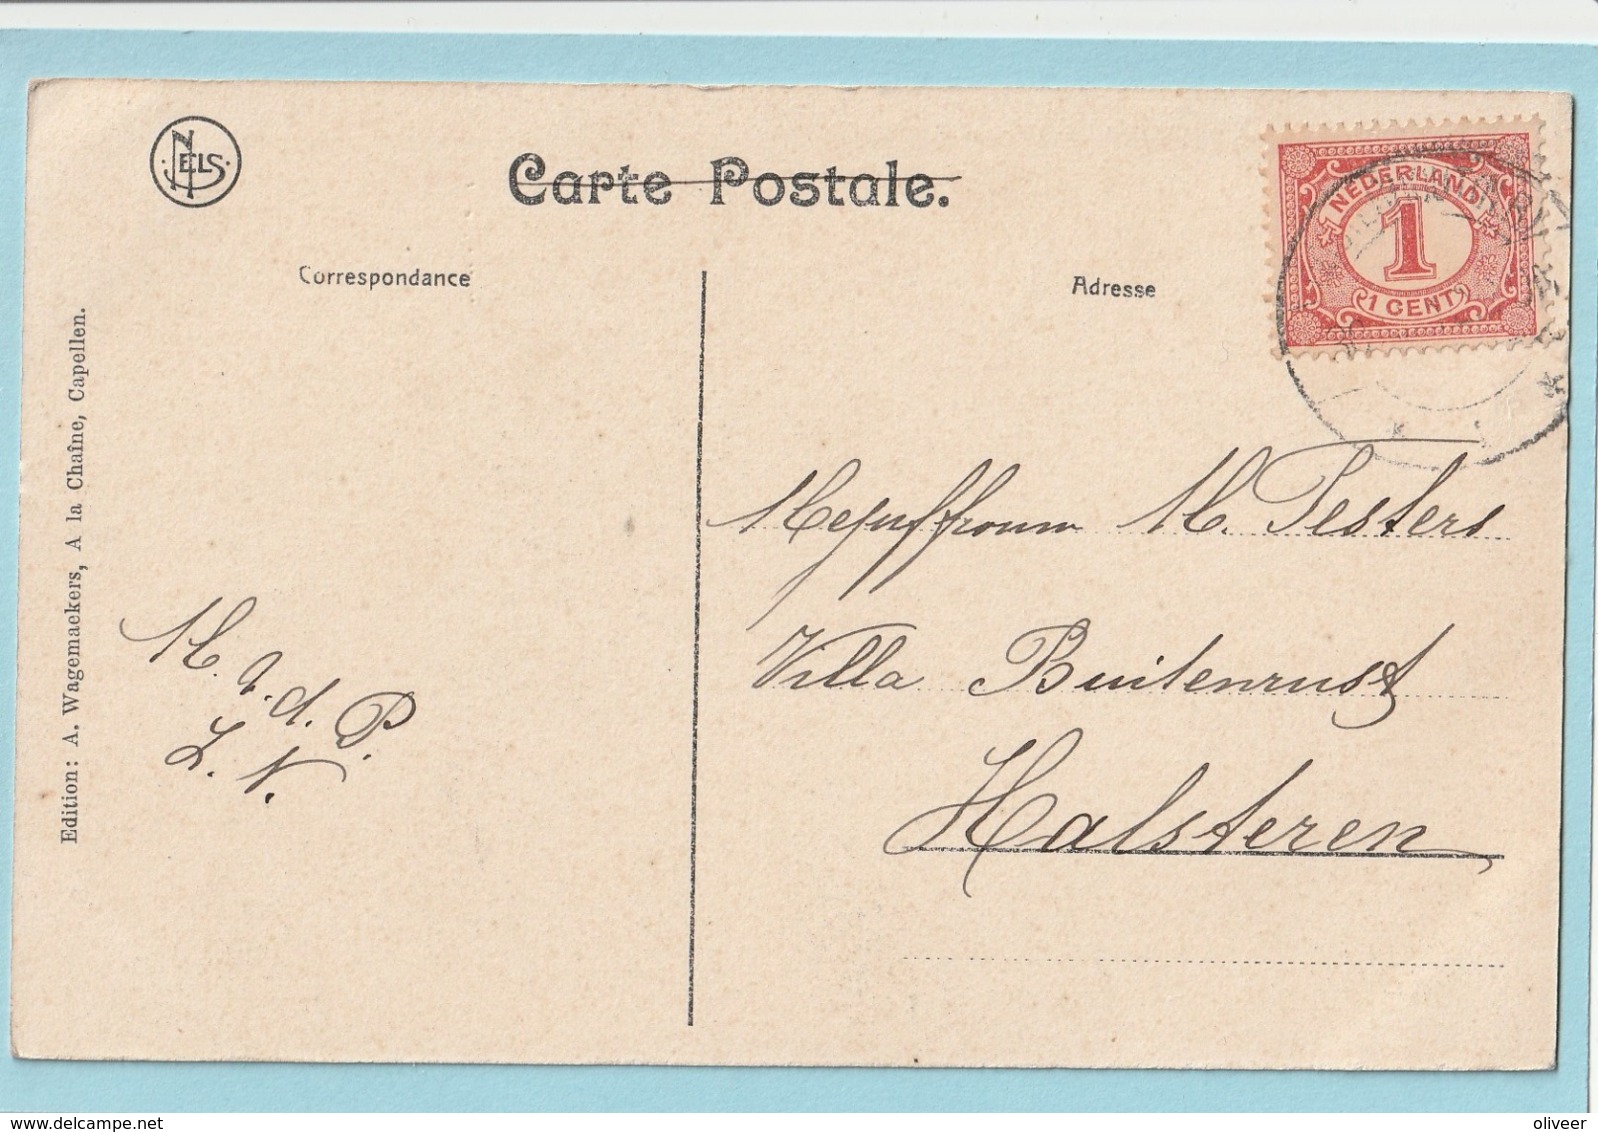 NELS
Carte Postale.
Correspondance
Adresse
NEDERLAND
1
1 CENT
Edition: A. Wagemaekers, A la Chaîne, Capellen.
Mejuffrouw M. Pesters
Villa Buitenrust
Halsteren
M. v. d. P.
Z. N.
delcampe.net
oliveer